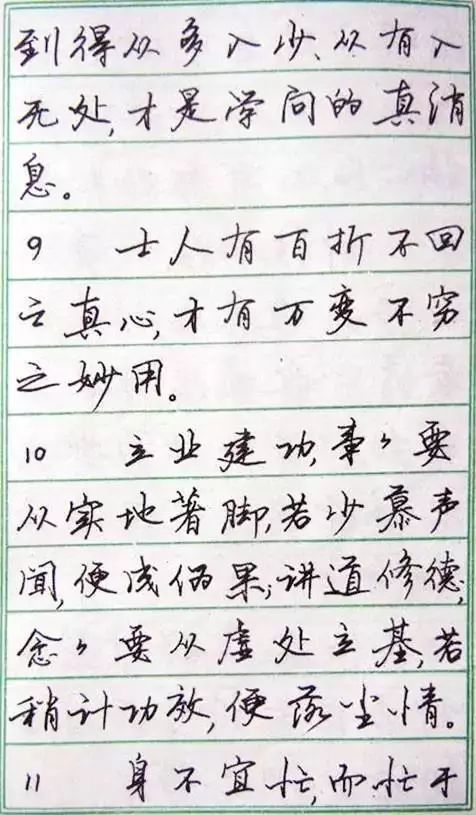 到得从多入少、从有入
无处,才是学问的真消
息。
9 士人有百折不回
之真心,才有万变不穷
之妙用。
10 立业建功,事々要
从实地著脚,若少慕声
闻,便成伪果;讲道修德,
念々要从虚处立基,若
稍计功效,便落尘情。
11 身不宜忙,而忙于